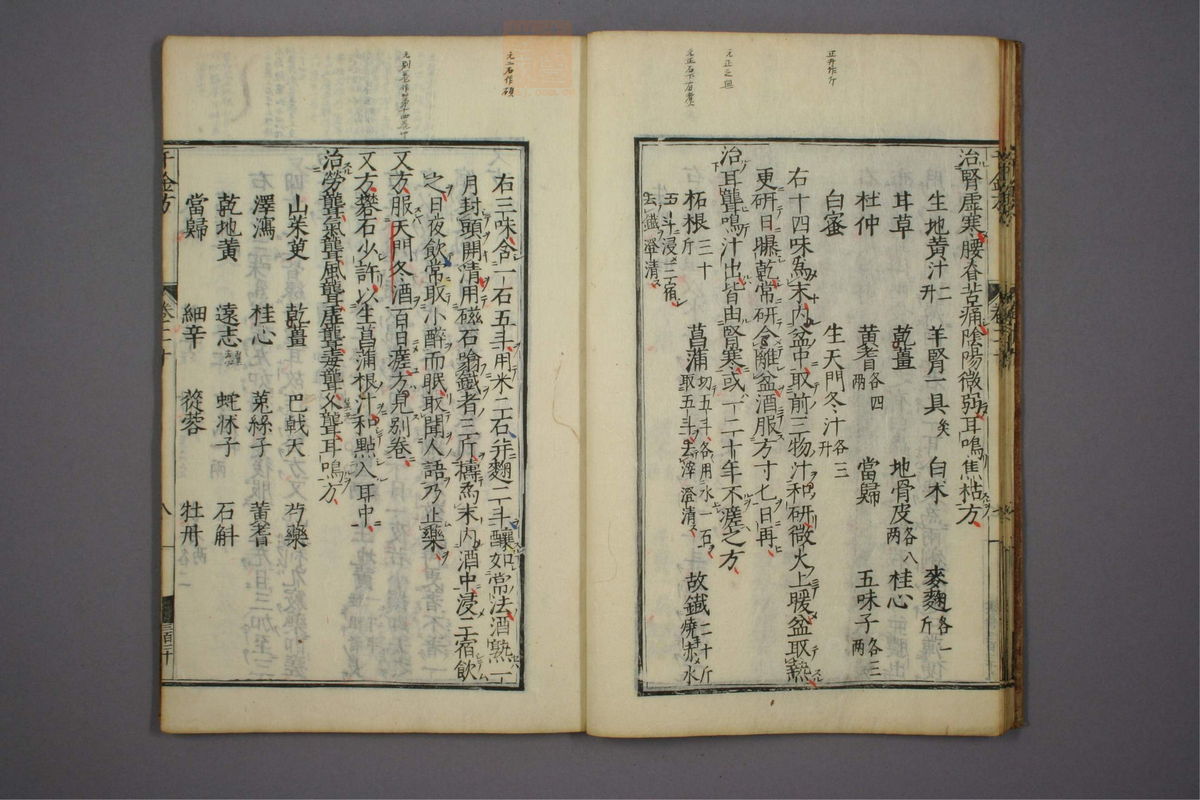 正升作斤
元正之匝
治腎虛寒腰脊苦痛陰陽微弱耳鳴焦枯方
生地黃汁二升 羊腎一具矣 白朮 麥麴各一斤
耳草 乾薑 地骨皮各八兩 桂心
杜仲 黃耆各四兩 當歸 五味子各三兩
白蜜 生天門冬汁各三升
右十四味爲末內盆中取前三物汁和研微火上暖盆取熱
更研日曝乾常研令離盆酒服方寸匕日再
治耳聾鳴汁出皆由腎寒或一二十年不瘥之方
柘根三十斤 菖蒲切五斗各用水一石 故鐵二十斤燒赤水
五斗浸三宿去鐵澄清 取五斗去滓澄清
千金方
卷二十
元二石作碩
右三味合一石五斗用米二石幷麴二斗釀如常法酒熟一
月封頭開清用磁石翕鐵者三斤擣爲末內酒中浸三宿飲
之日夜飲常取小醉而眠取聞人語乃止藥
又方服天門冬酒百日瘥方見別卷
又方礬石少許以生菖蒲根汁和點入耳中
治勞聾氣聾風聾虛聾毒聾久聾耳鳴方
山茱萸 乾薑 巴戟天 芍藥
澤瀉 桂心 菟絲子 黃耆
乾地黃 遠志 蛇牀子 石斛
當歸 細辛 蓯蓉 牡丹
千金方 卷二十 八